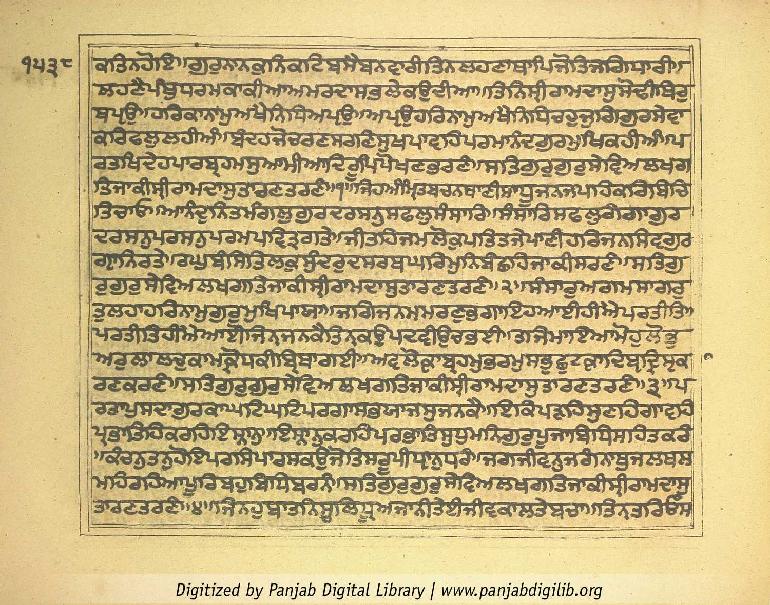 ੧੫੩੮
ਕਤਿਨਹੋਇ॥ਗੁਰੁਨਾਨਕੁਨਿਕਟਿਬਸੈਬਨਵਾਰੀਤਿਨਲਹਣਾਥਾਪਿਜੋਤਿਜਗਿਧਾਰੀ॥
ਲਹਣੈਪੰਥੁਧਰਮਕਾਕੀਆਅਮਰਦਾਸਭਲੇਕਉਦੀਆ॥ਤਿਨਿਸ੍ਰੀਰਾਮਦਾਸੁਸੋਢੀਥਿਰੁ
ਥਪ੍ਉ॥ਹਰਿਕਾਨਾਮੁਅਖੈਨਿਧਿਅਪ੍ਉ॥ਅਪ੍ਉਹਰਿਨਾਮੁਅਖੈਨਿਧਿਚਹੁਜੁਗਿਗੁਰਸੇਵਾ
ਕਰਿਫਲੁਲਹੀਅੰ॥ਬੰਦਹਜੋਚਰਣਸਰਣਿਸੁਖਪਾਵਹਿਪਰਮਾਨੰਦਗੁਰਮੁਖਿਕਹੀਅੰ॥ਪ
ਰਤਖਿਦੇਹਪਾਰਬ੍ਰਹਮਸੁਆਮੀਆਦਿਰੂਪਿਪੋਖਣਭਰਣੰ॥ਸਤਿਗੁਰੁਗੁਰੁਸੇਵਿਅਲਖਗ
ਤਿਜਾਕੀਸ੍ਰੀਰਾਮਦਾਸੁਤਾਰਣਤਰਣੰ॥੧॥ਜਿਹਅੰਮ੍ਰਿਤਬਚਨਬਾਣੀਸਾਧੂਜਨਜਪਹਿਕਰਿਬਿਚਿ
ਤਿਚਾਓ॥ਆਨੰਦੁਨਿਤਮੰਗਲੁਗੁਰਦਰਸਨੁਸਫਲੁਸੰਸਾਰਿ॥ਸੰਸਾਰਿਸਫਲੁਗੰਗਾਗੁਰ
ਦਰਸਨੁਪਰਸਨੁਪਰਮਪਵਿਤ੍ਰਗਤੇ॥ਜੀਤਹਿਜਮਲੋਕੁਪਤਿਤਜੇਪ੍ਰਾਣੀਹਰਿਜਨਸਿਵਗੁਰ
ਗ੍ਯਾਨਿਰਤੇ॥ਰਘੁਬੰਸਿਤਿਲਕੁਸੁੰਦਰੁਦਸਰਥਘਰਿਮੁਨਿਬੰਛਹਿਜਾਕੀਸਰਣੰ॥ਸਤਿਗੁ
ਰੁਗੁਰੁਸੇਵਿਅਲਖਗਤਿਜਾਕੀਸ੍ਰੀਰਾਮਦਾਸੁਤਾਰਣਤਰਣੰ॥੨॥ਸੰਸਾਰੁਅਗਮਸਾਗਰੁ
ਤੁਲਹਾਹਰਿਨਾਮੁਗੁਰੂਮੁਖਿਪਾਯਾ॥ਜਗਿਜਨਮਮਰਣੁਭਗਾਇਹਆਈਹੀਐਪਰਤੀਤਿ॥
ਪਰਤੀਤਿਹੀਐਆਈਜਿਨਜਨਕੈਤਿਨ੍ਕਉਪਦਵੀਉਚਭਈ॥ਤਜਿਮਾਇਆਮੋਹੁਲੋਭੁ
ਅਰੁਲਾਲਚੁਕਾਮਕ੍ਰੋਧਕੀਬ੍ਰਿਥਾਗਈ॥ਅਵਲੋਕ੍ਯਾਬ੍ਰਹਮੁਭਰਮੁਸਭੁਛੁਟਕ੍ਯਾਦਿਬ੍ਯਦ੍ਰਿਸ੍ਟਿਕ
ਰਣਕਰਣੰ॥ਸਤਿਗੁਰੁਗੁਰੁਸੇਵਿਅਲਖਗਤਿਜਾਕੀਸ੍ਰੀਰਾਮਦਾਸੁਤਾਰਣਤਰਣੰ॥੩॥ਪ
ਰਤਾਪੁਸਦਾਗੁਰਕਾਘਟਿਘਟਿਪਰਗਾਸਭਯਾਜਸੁਜਨਕੈ॥ਇਕਿਪੜਹਿਸੁਣਹਿਗਾਵਹਿ
ਪ੍ਰਭਾਤਿਹਿਕਰਹਿਇਸ੍ਨਾਨੁ॥ਇਸ੍ਨਾਨੁਕਰਹਿਪਰਭਾਤਿਸੁਧਮਨਿਗੁਰਪੂਜਾਬਿਧਿਸਹਿਤਕਰੰ
॥ਕੰਚਨੁਤਨੁਹੋਇਪਰਸਿਪਾਰਸਕਉਜੋਤਿਸਰੂਪੀਧ੍ਯਾਨੁਧਰੰ॥ਜਗਜੀਵਨੁਜਗੰਨਾਥੁਜਲਥਲ
ਮਹਿਰਹਿਆਪੂਰਿਬਹੁਬਿਧਿਬਰਨੰ॥ਸਤਿਗੁਰੁਗੁਰੁਸੇਵਿਅਲਖਗਤਿਜਾਕੀਸ੍ਰੀਰਾਮਦਾਸੁ
ਤਾਰਣਤਰਣੰ॥੪॥ਜਿਨਹੁਬਾਤਨਿਸ੍ਚਲਧ੍ਰੂਅਜਾਨੀਤੇਈਜੀਵਕਾਲਤੇਬਚਾ॥ਤਿਨ੍ਤਰਿਓਸ
Digitized by Panjab Digital Library | www.panjabdigilib.org